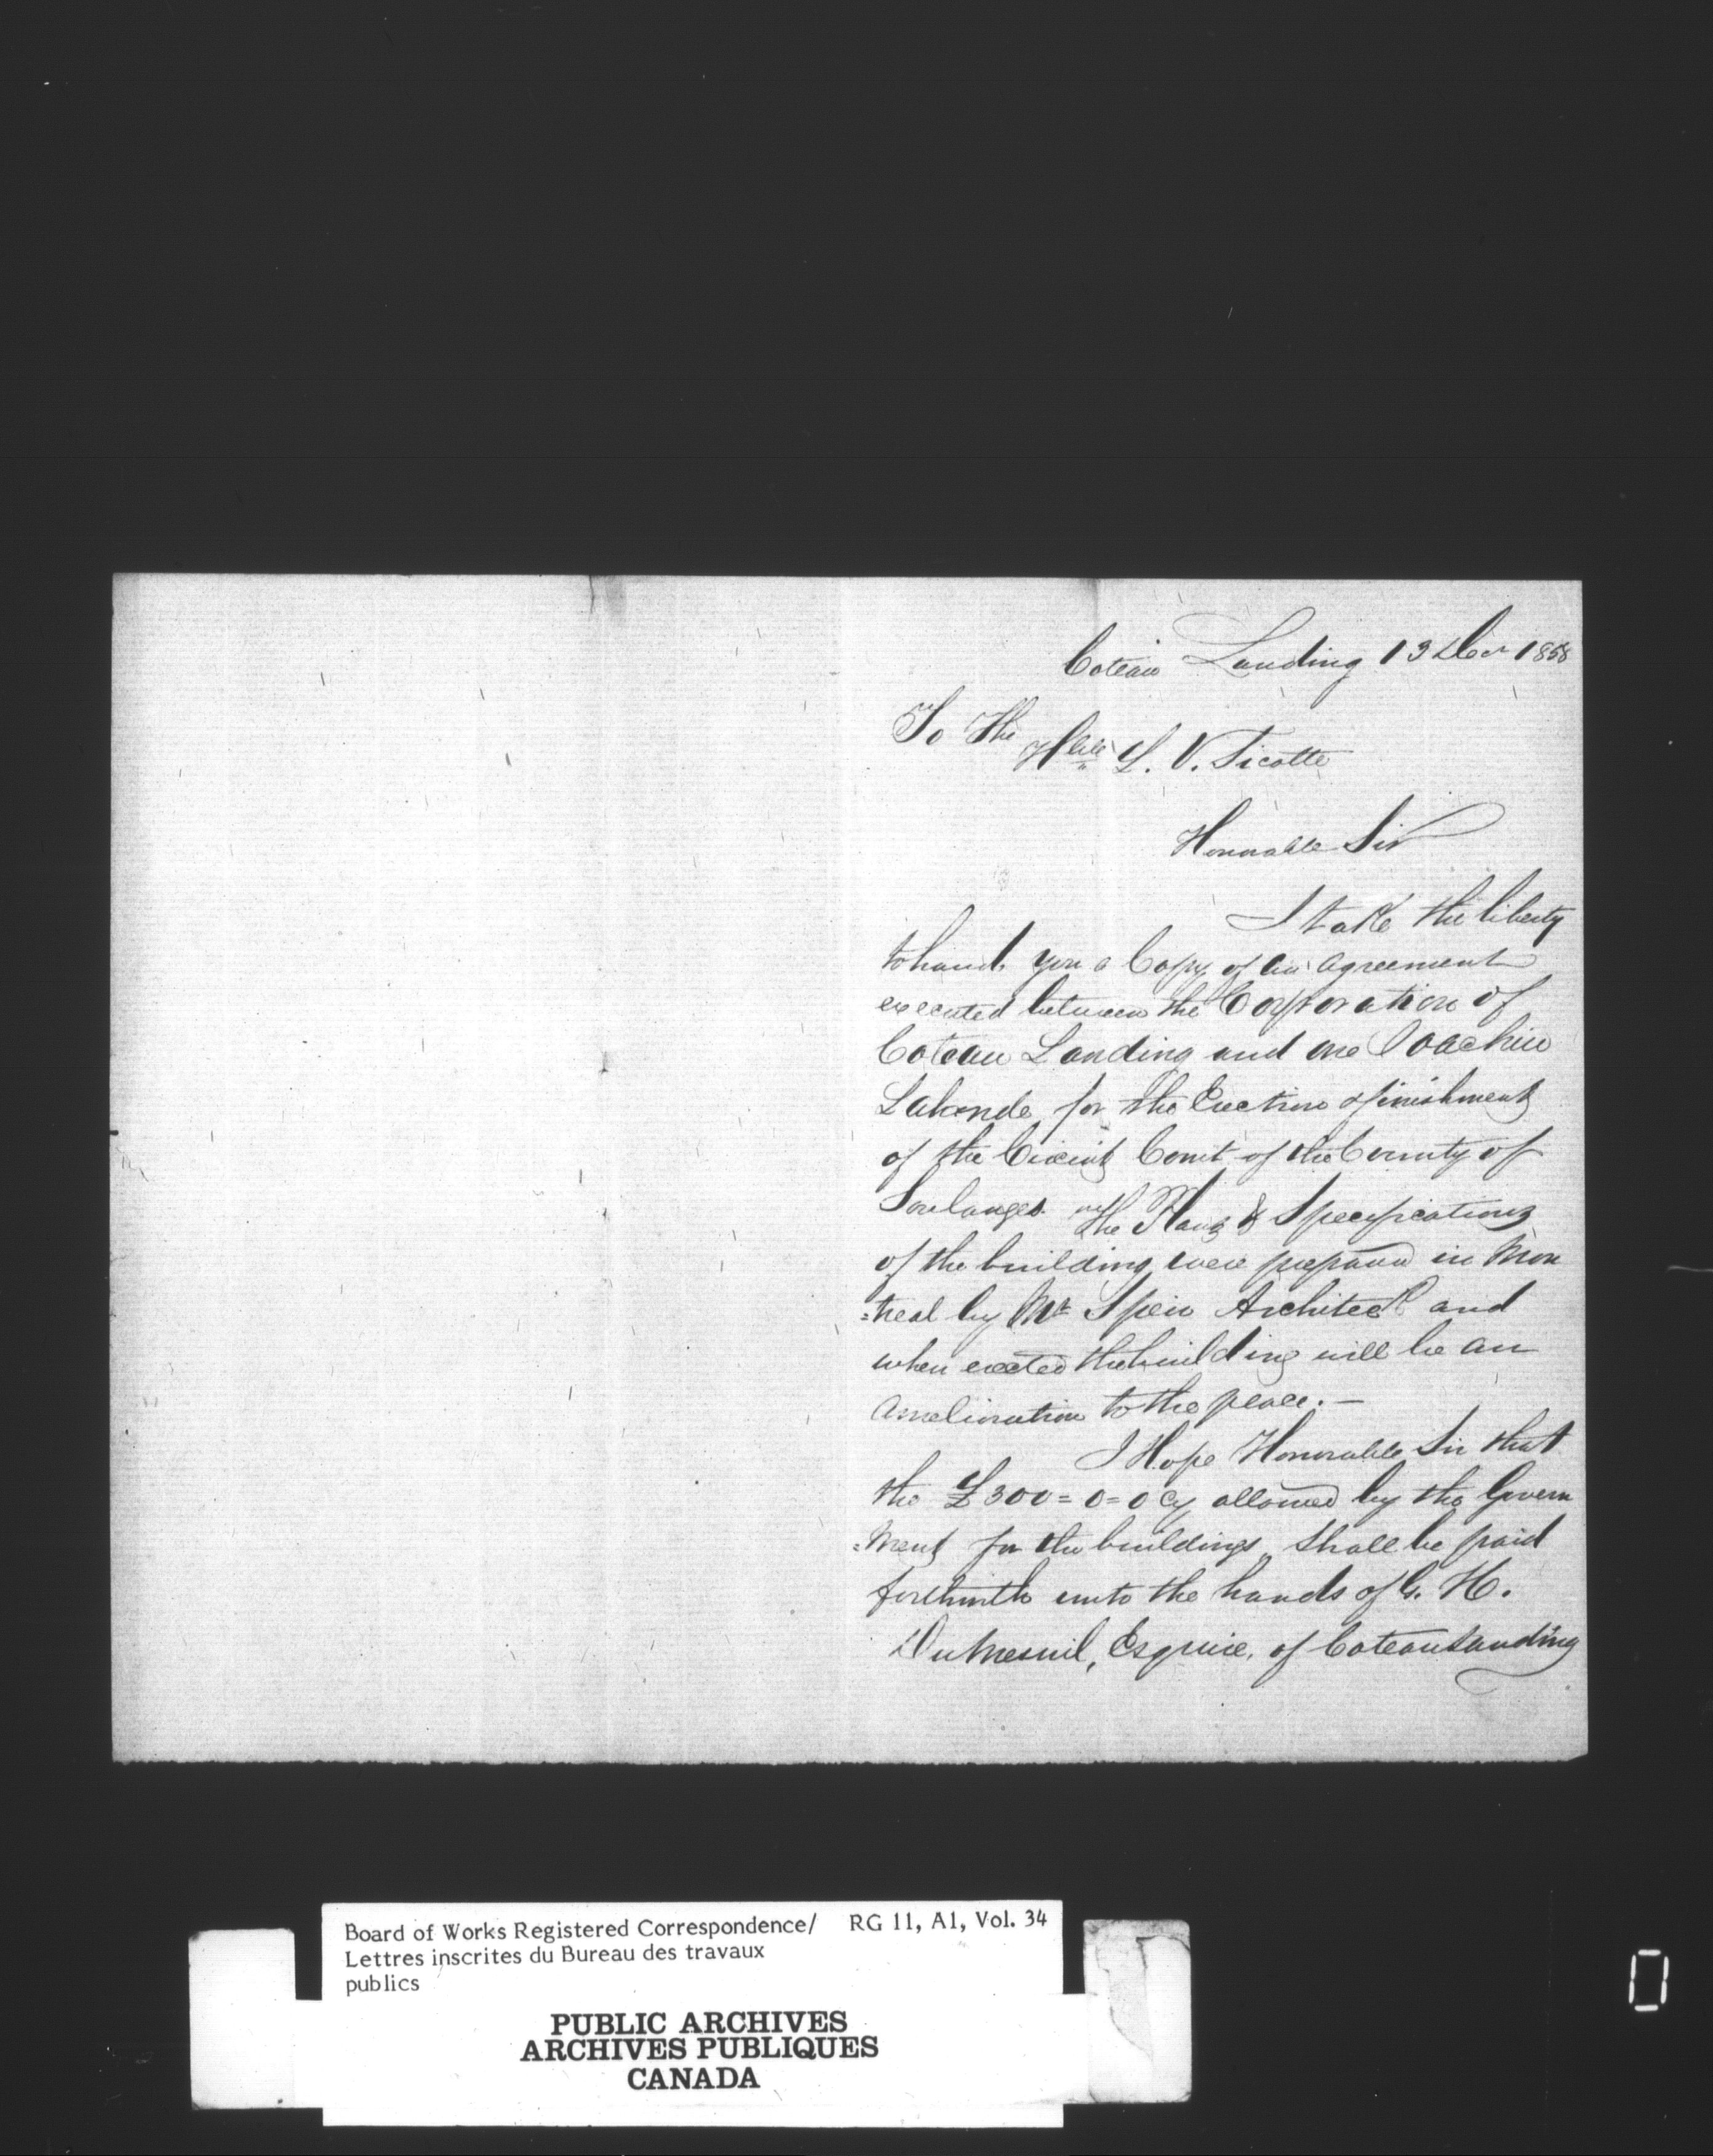 Coteau Landing 13 Decr 1858
To The Hble L. V. Sicotte
Honorable Sir
I take the liberty
to hand you a Copy of an agreement
executed between the Corporation of
Coteau Landing and one Joachim
Lalonde for the Erection & finishment
of the Circuit Court of the County of
Soulanges the Plans & Specifications
of the building were prepared in Mon
=treal by Mr Speir Architect and
when erected the building will be an
amelioration to the place. —
I Hope Honorable Sir that
the £300=0=0 Cy allowed by the Govern
=ment for the buildings shall be paid
forthwith unto the hands of G. H.
DuMesnil, Esquire, of Coteau Landing
Board of Works Registered Correspondence/ RG 11, A1, Vol. 34
Lettres inscrites du Bureau des travaux
publics
PUBLIC ARCHIVES
ARCHIVES PUBLIQUES
CANADA